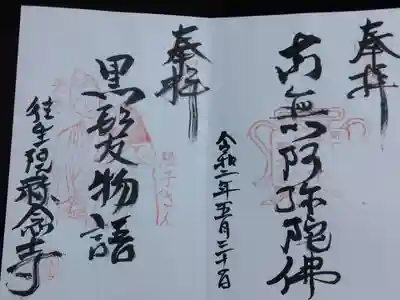 奉拝
南無阿弥陀佛
令和二年五月二十日
奉拝
黒髪物語
往生院称念寺